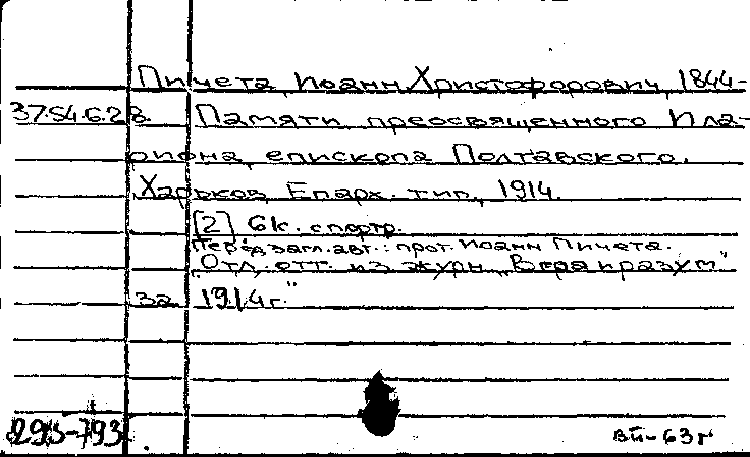 Пичета, Иоанн Христофорович, 1844-
37.54.6.28. Памяти преосвященного Ила-
риона, епископа Полтавского.
Харьков, Епарх. тип., 1914.
[2] 6к. с портр.
Перед загл. авт.: прот. Иоанн Пичета.
"Отд. отт. из журн. "Вера и разум"
за 1914г."
293-793
вп-63г